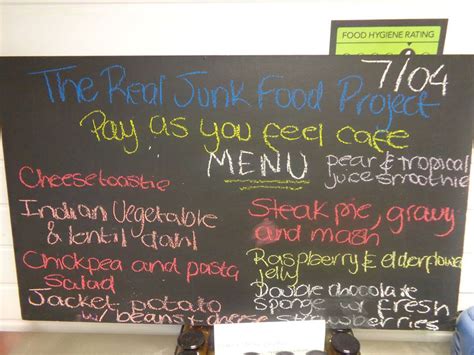 FOOD HYGIENE RATING
7/04
The Real Junk Food Project
Pay as you feel cafe
MENU
pear & tropical
juice smoothie
Cheese toastie
Indian Vegetable
& lentil dahl
Chickpea and pasta
Salad
Jacket potato
w/ beans & cheese
Steak pie, gravy
and mash
Raspberry & elderflower
jelly
Double chocolate
sponge w/ fresh
strawberries